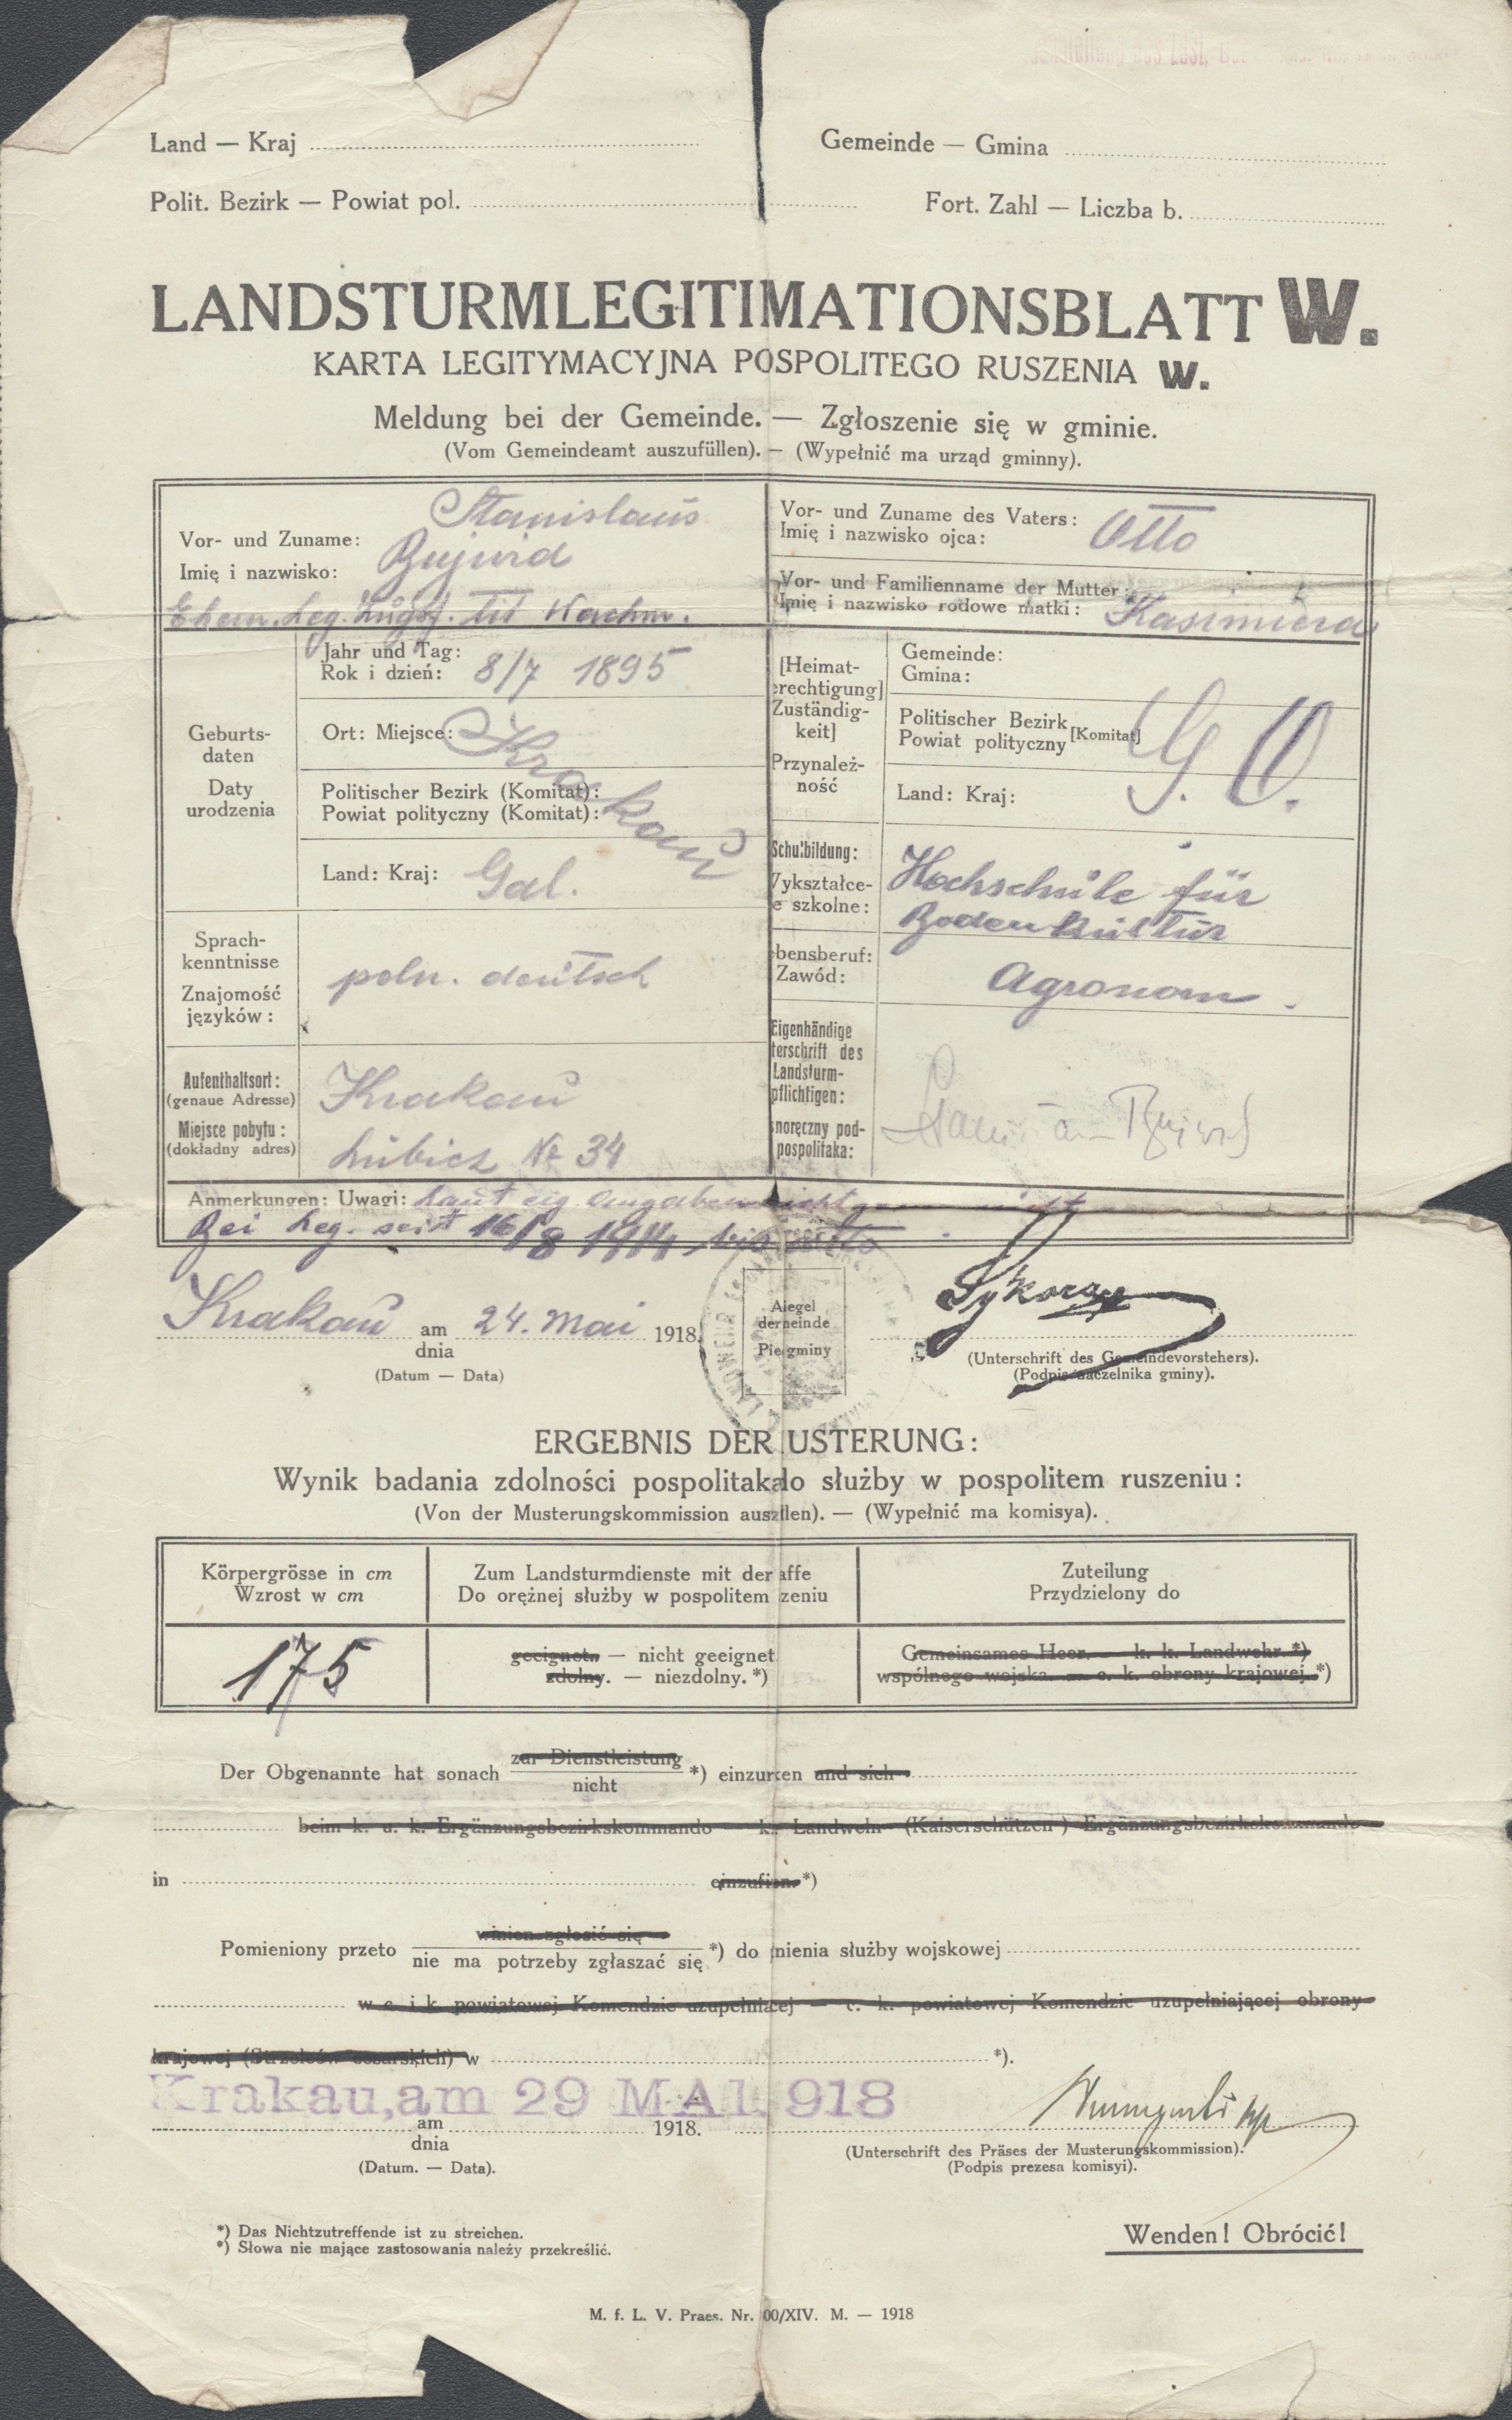 Land — Kraj
Gemeinde — Gmina
Polit. Bezirk — Powiat pol.
Fort. Zahl — Liczba b.
LANDSTURMLEGITIMATIONSBLATT W.
KARTA LEGITYMACYJNA POSPOLITEGO RUSZENIA W.
Meldung bei der Gemeinde. — Zgłoszenie się w gminie.
(Vom Gemeindeamt auszufüllen). — (Wypełnić ma urząd gminny).
Vor- und Zuname: Stanislaus
Imię i nazwisko: Bujwid
Ehem. Leg. Zugsf. tit Wachm.
Vor- und Zuname des Vaters:
Imię i nazwisko ojca: Otto
Vor- und Familienname der Mutter:
Imię i nazwisko rodowe matki: Kasimiera
Geburts-
daten
Daty
urodzenia
Jahr und Tag:
Rok i dzień: 8/7 1895
Ort: Miejsce: Krakau
Politischer Bezirk (Komitat):
Powiat polityczny (Komitat):
Land: Kraj: Gal.
[Heimat-
erechtigung]
Zuständig-
keit]
Przynależ-
ność
Gemeinde:
Gmina:
Politischer Bezirk
Powiat polityczny [Komitat]
Land: Kraj:
Sprach-
kenntnisse
Znajomość
języków:
poln. deutsch
Schulbildung:
Wykształce-
e szkolne:
Hochschule für
Bodenkultur
bensberuf:
Zawód:
Agronom.
Aufenthaltsort:
(genaue Adresse)
Miejsce pobytu:
(dokładny adres)
Krakau
Lubicz № 34
Eigenhändige
terschrift des
Landsturm-
pflichtigen:
snoręczny pod-
pospolitaka:
Bujwid
Anmerkungen: Uwagi: Laut eig. Angaben nicht
Bei Leg. seit 16/8 1914 bis
Krakau am 24. Mai 1918.
dnia
(Datum — Data)
Aiegel
derneinde
Pie gminy
(Unterschrift des Gemeindevorstehers).
(Podpis naczelnika gminy).
ERGEBNIS DER USTERUNG:
Wynik badania zdolności pospolitaka do służby w pospolitem ruszeniu:
(Von der Musterungskommission ausz llen). — (Wypełnić ma komisya).
Körpergrösse in cm
Wzrost w cm
Zum Landsturmdienste mit der affe
Do orężnej służby w pospolitem zeniu
Zuteilung
Przydzielony do
175
geeignet. — nicht geeignet
zdolny. — niezdolny. *)
Gemeinsames Heer. — k. k. Landwehr *)
wspólnego wojska. — c. k. obrony krajowej. *)
Der Obgenannte hat sonach zur Dienstleistung
nicht *) einzur ken und sich
beim k. u. k. Ergänzungsbezirkskommando — k. Landwehr (Kaiserschützen-) Ergänzungsbezirkskommando
in einzufi en. *)
Pomieniony przeto winien zgłosić się
nie ma potrzeby zgłaszać się *) do nienia służby wojskowej
w c. i k. powiatowej Komendzie uzupełni cej — c. k. powiatowej Komendzie uzupełniającej obrony
krajowej (Strzelców cesarskich) w *).
Krakau, am 29 MAI. 918
am 1918.
dnia
(Datum. — Data).
(Unterschrift des Präses der Musterungskommission).
(Podpis prezesa komisyi).
*) Das Nichtzutreffende ist zu streichen.
*) Słowa nie mające zastosowania należy przekreślić.
Wenden! Obrócić!
M. f. L. V. Praes. Nr. 00/XIV. M. — 1918